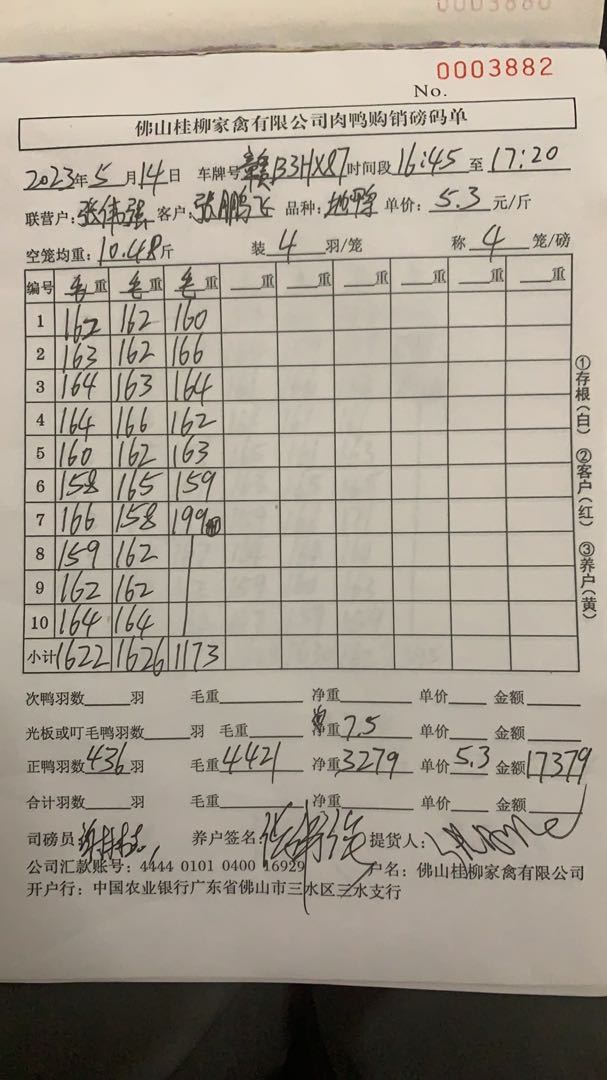 0003882
No.
佛山桂柳家禽有限公司肉鸭购销磅码单
2023年5月14日 车牌号赣B3HX87时间段16:45至17:20
联营户:张伟强 客户:张鹏飞 品种: 单价:5.3元/斤
空笼均重:10.48斤 装4羽/笼 称4笼/磅
编号 毛重 毛重 毛重 重 重 重 重 重
1 162 162 160
2 163 162 166
3 164 163 164
4 164 166 162
5 160 162 163
6 158 165 159
7 166 158 199
8 159 162
9 162 162
10 164 164
小计 1622 1626 1173
①存根(白) ②客户(红) ③养户(黄)
次鸭羽数 羽 毛重 净重 单价 金额
光板或叮毛鸭羽数 羽 毛重 净重7.5 单价 金额
正鸭羽数436羽 毛重4421 净重3279 单价5.3 金额17379
合计羽数 羽 毛重 净重 单价 金额
司磅员 养户签名: 提货人:
公司汇款账号:4444 0101 0400 16929 户名:佛山桂柳家禽有限公司
开户行:中国农业银行广东省佛山市三水区三水支行